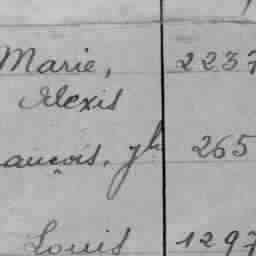 Marie, 2237
Alexis
ançois, Jh 265
Louis 1297